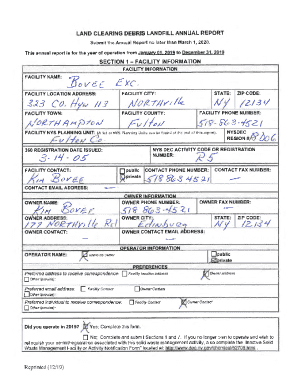 LAND CLEARING DEBRIS LANDFILL ANNUAL REPORT
Submit the Annual Report no later than March 1, 2020.
This annual report is for the year of operation from January 01, 2019 to December 31, 2019
SECTION 1 – FACILITY INFORMATION
FACILITY INFORMATION
FACILITY NAME: Bovee Exc
FACILITY LOCATION ADDRESS: FACILITY CITY: STATE: ZIP CODE:
323 Co. Hwy 113 Northville NY 12134
FACILITY TOWN: FACILITY COUNTY: FACILITY PHONE NUMBER:
Northampton Fulton 518-863-4521
FACILITY NYS PLANNING UNIT: NYSDEC
Fulton Co. REGION #:
360 REGISTRATION DATE ISSUED: NYS DEC ACTIVITY CODE OR REGISTRATION
3-14-05 NUMBER: R5
FACILITY CONTACT: public CONTACT PHONE NUMBER: CONTACT FAX NUMBER:
Kim Bovee private 518 863 4521 —
CONTACT EMAIL ADDRESS: —
OWNER INFORMATION
OWNER NAME: OWNER PHONE NUMBER: OWNER FAX NUMBER:
Kim Bovee 518 863-4521 —
OWNER ADDRESS: OWNER CITY: STATE: ZIP CODE:
Northville Rd Edinburg NY 12134
OWNER CONTACT: OWNER CONTACT EMAIL ADDRESS:
OPERATOR INFORMATION
OPERATOR NAME: same as owner public
private
PREFERENCES
Preferred address to receive correspondence: Facility location address Owner address
Other (provide):
Preferred email address: Facility Contact Owner Contact
Other (provide):
Preferred individual to receive correspondence: Facility Contact Owner Contact
Other (provide):
Did you operate in 2019? Yes; Complete this form.
No; Complete and submit Sections 1 and 7. If you no longer plan to operate and wish to
relinquish your permit/registration associated with this solid waste management activity, also complete the "Inactive Solid
Waste Management Facility or Activity Notification Form" located at:
Reprinted (12/19)